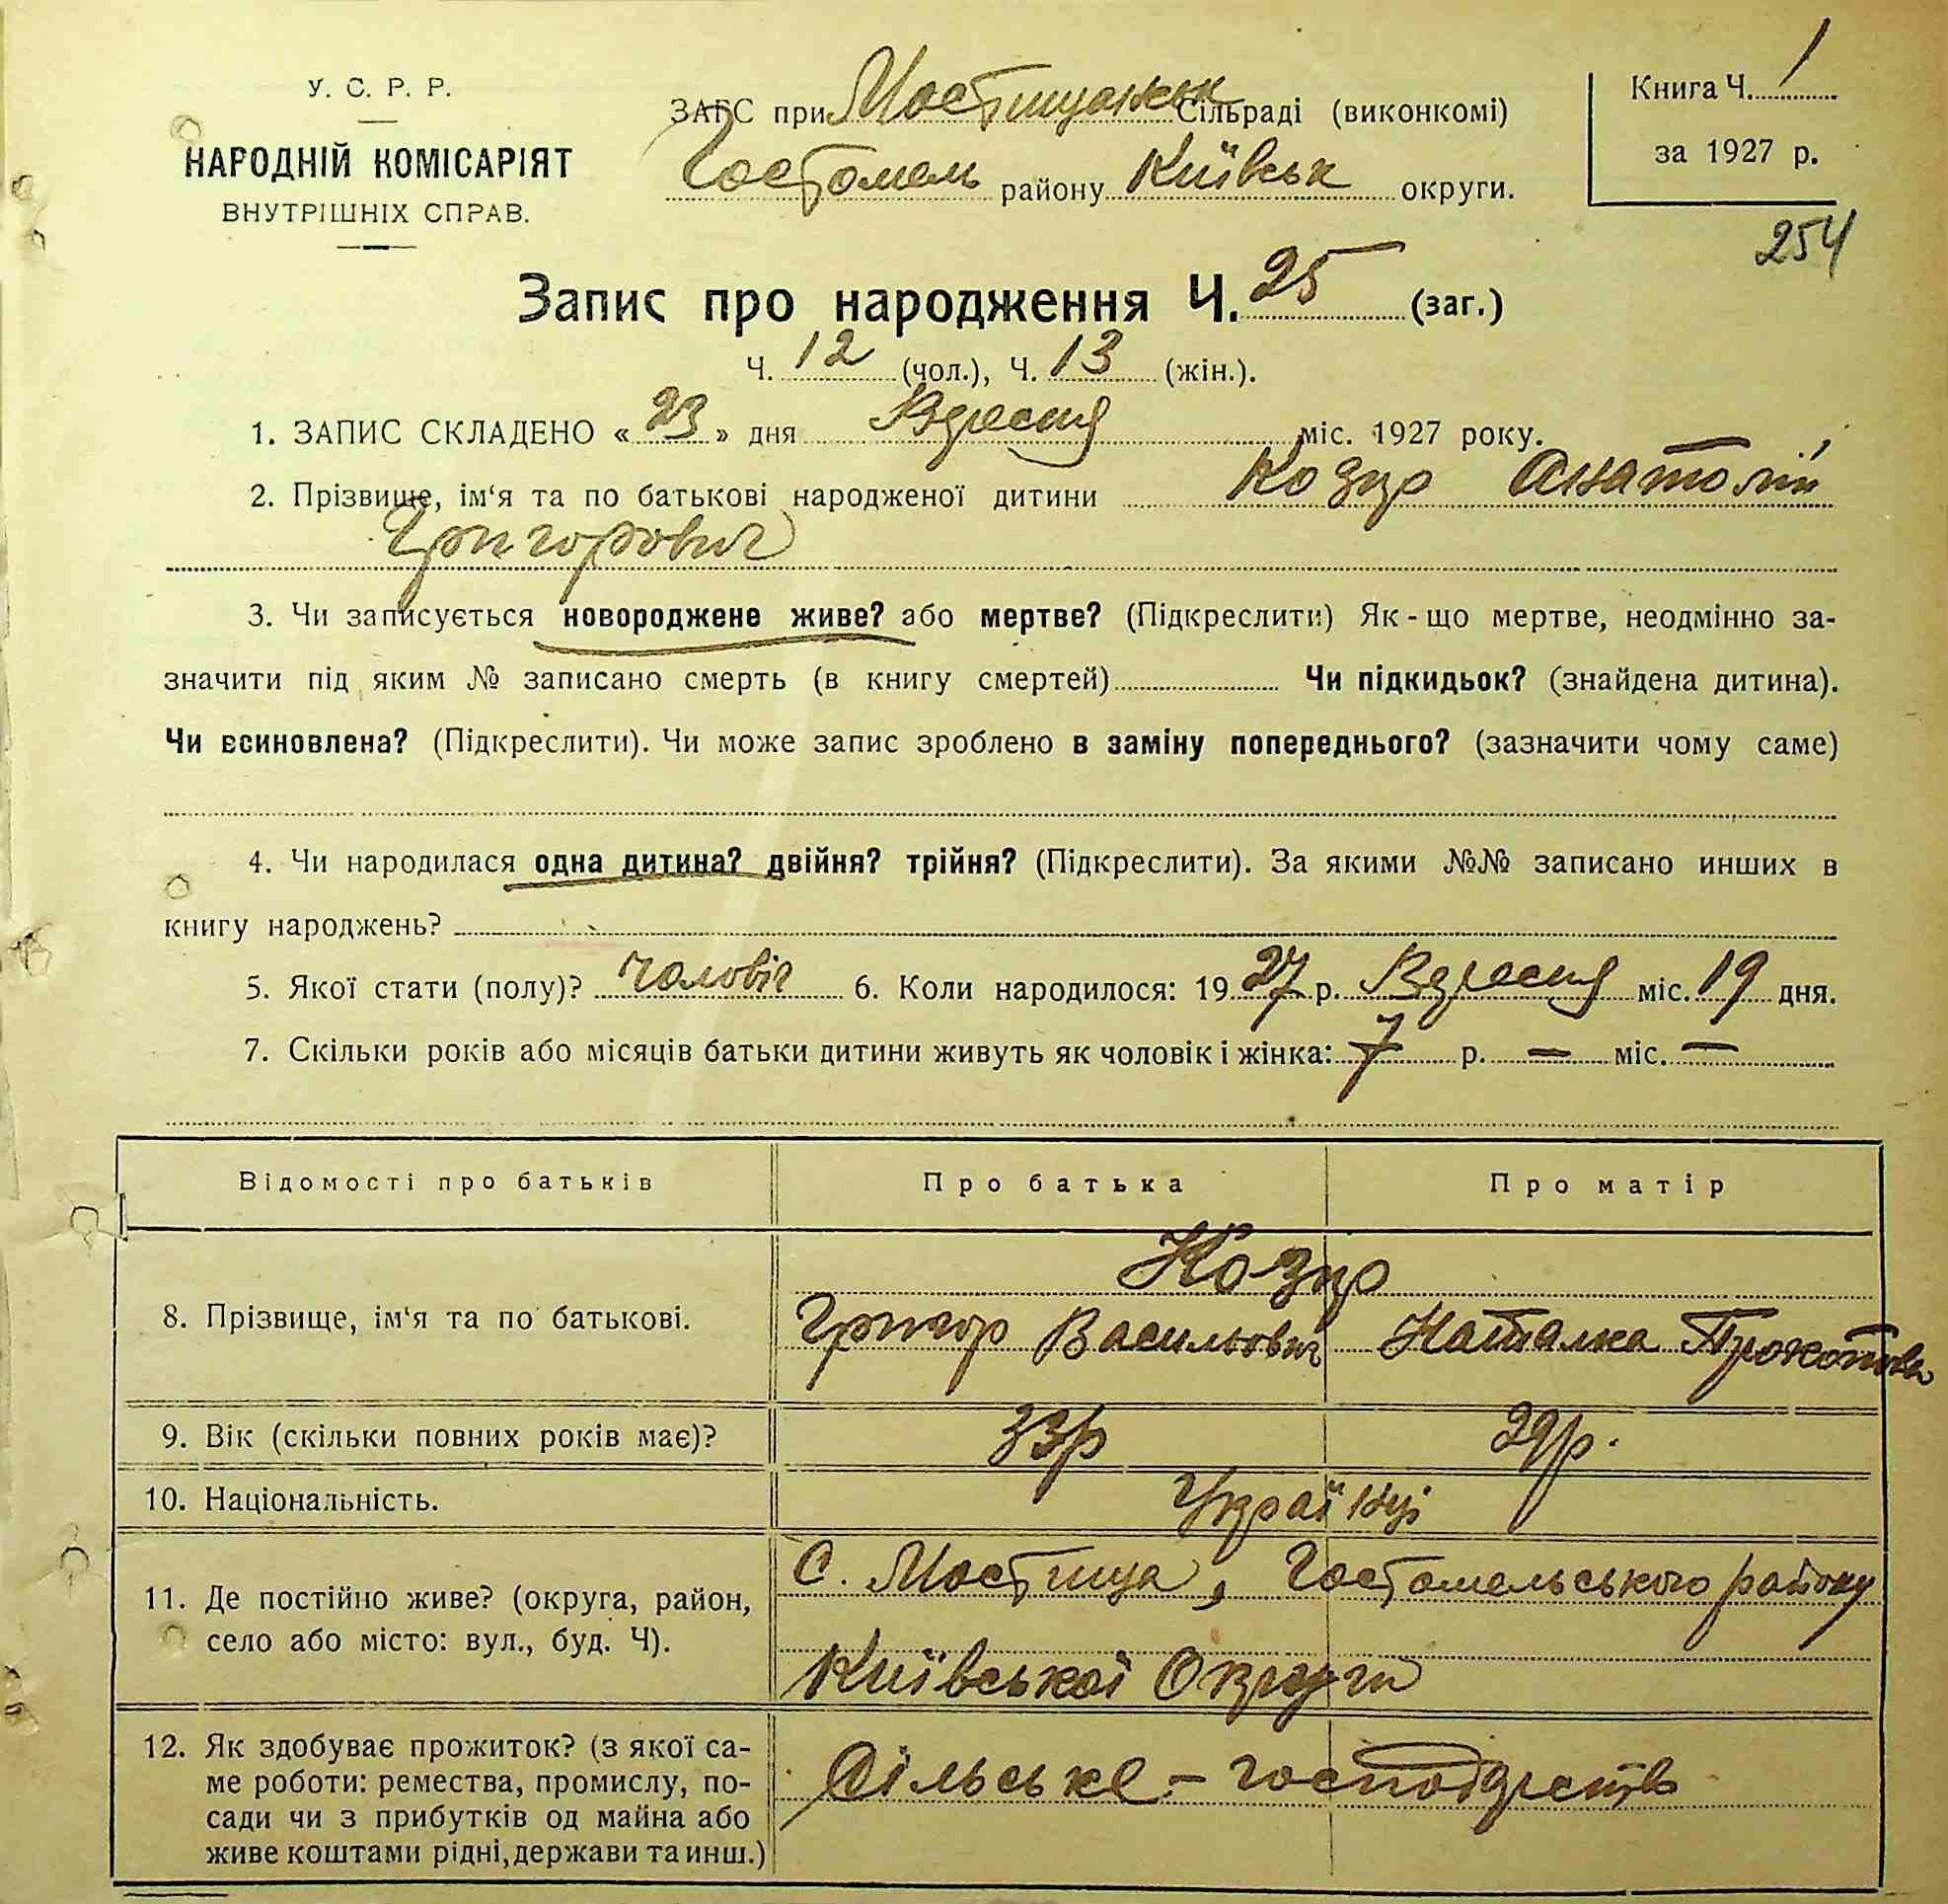 У. С. Р. Р.
НАРОДНІЙ КОМІСАРІЯТ
ВНУТРІШНІХ СПРАВ.
ЗАГС при Мостищанськ Сільраді (виконкомі)
Гостомель району Київськ округи.
Книга Ч. 1
за 1927 р.
254
Запис про народження Ч. 25 (заг.)
Ч. 12 (чол.), Ч. 13 (жін.).
1. ЗАПИС СКЛАДЕНО « 23 » дня Вересня міс. 1927 року.
2. Прізвище, ім‘я та по батькові народженої дитини Анатолій
Григорович
3. Чи записується новороджене живе? або мертве? (Підкреслити) Як-що мертве, неодмінно за-
значити під яким № записано смерть (в книгу смертей) Чи підкидьок? (знайдена дитина).
Чи всиновлена? (Підкреслити). Чи може запис зроблено в заміну попереднього? (зазначити чому саме)
4. Чи народилася одна дитина? двійня? трійня? (Підкреслити). За якими №№ записано инших в
книгу народжень?
5. Якої стати (полу)? чоловіч 6. Коли народилося: 1927 р. Вересня міс. 19 дня.
7. Скільки років або місяців батьки дитини живуть як чоловік і жінка: 7 р. — міс. —
Відомості про батьків Про батька Про матір
8. Прізвище, ім‘я та по батькові.
Григор Васильович Наталка Прокопівн
9. Вік (скільки повних років має)? 33р 29р.
10. Національність. Українці
11. Де постійно живе? (округа, район,
село або місто: вул., буд. Ч).
С. Мостища, Гостомельського району
Київської Округи
12. Як здобуває прожиток? (з якої са-
ме роботи: ремества, промислу, по-
сади чи з прибутків од майна або
живе коштами рідні, держави та инш.)
Сільське - господарство